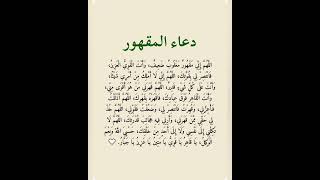 دعاء المقهور
اللَّهُمَّ إِنِّي مَقْهُورٌ مَغْلُوبٌ ضَعِيفٌ، وَأَنْتَ الْقَوِيُّ الْعَزِيزُ،
فَانْتَصِرْ لِي بِقُوَّتِكَ، اللَّهُمَّ إِنِّي لَا أَمْلِكُ مِنْ أَمْرِي شَيْئًا،
وَأَنْتَ عَلَى كُلِّ شَيْءٍ قَدِيرٌ، اللَّهُمَّ قَهَرَنِي مَنْ هُوَ أَقْوَى مِنِّي،
وَأَنْتَ الْقَاهِرُ فَوْقَ عِبَادِكَ، فَاقْهَرْهُ بِقَهْرِكَ، اللَّهُمَّ
فَأَعِزَّنِي، وَقُهِرْتُ فَانْتَصِرْ لِي، وَضَعُفْتُ فَقَوِّنِي، اللَّهُمَّ
لِي حَقِّي مِمَّنْ قَهَرَنِي، وَأَرِنِي فِيهِ عَجَائِبَ قُدْرَتِكَ، اللَّهُمَّ لَا
تَكِلْنِي إِلَى نَفْسِي وَلَا إِلَى أَحَدٍ مِنْ خَلْقِكَ، حَسْبِيَ اللَّهُ وَنِعْمَ
الْوَكِيلُ، يَا قَاهِرُ يَا قَوِيُّ يَا مَتِينُ يَا عَزِيزُ يَا جَبَّارُ.